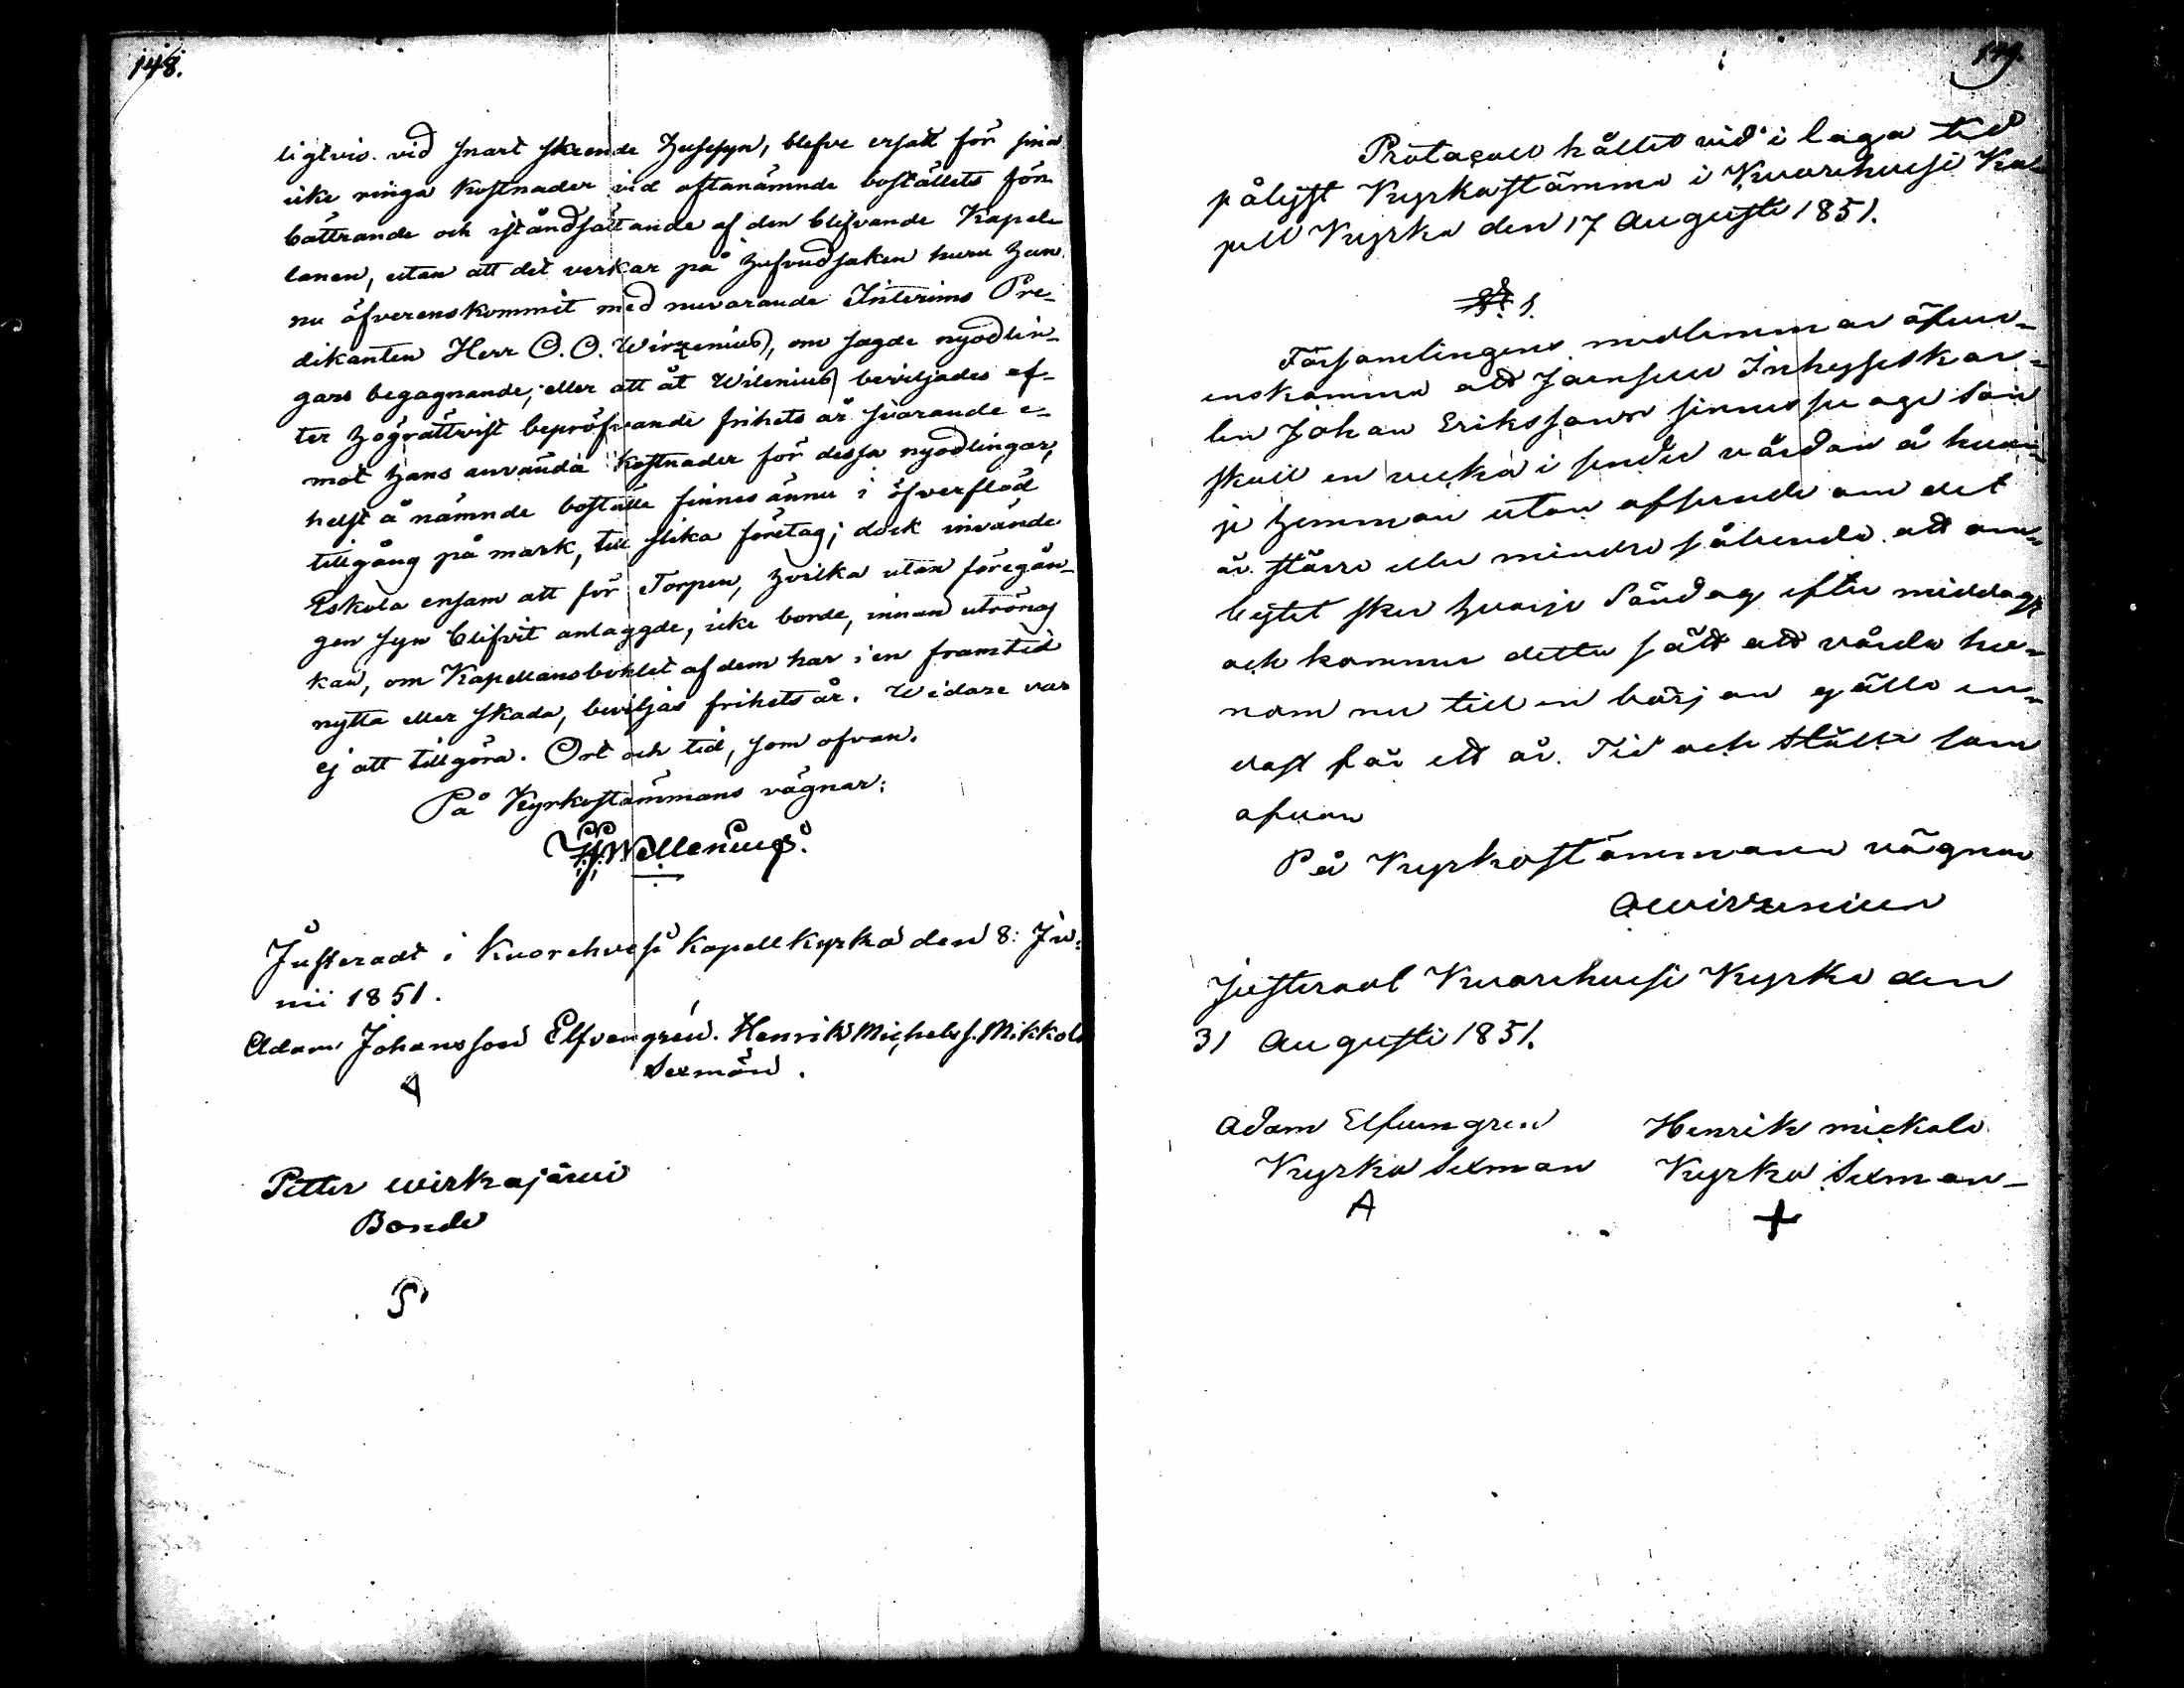 148.
ligtvis vid snart skeende Husesyn, blefve ersatt för sina
icke ringa kostnader vid oftanämnde boställets för-
bättrande och iståndsättande af den blifvande Kapel-
lanen, utan att det verkar på hufvudsaken huru han
nu öfverenskommit med nuvarande Interims Pre-
dikanten Herr O. O. Wirzenius, om sagde nyodlin-
gars begagnande, eller att åt Wilenius beviljades ef-
ter högrättvist bepröfvande frihets år svarande e-
mot hans använda kostnader för dessa nyodlingar,
helst å nämnde boställe finnes ännu i öfverflöd
tillgång på mark, till slika företag; dock invände
Eskola ensam att för Torpen, hvilka utan föregån-
gen syn blifvit anlaggde, icke borde, innan utrönas
kan, om Kapellansbohlet af dem har i en framtid
nytta eller skada, beviljas frihets år. Widare var
ej att tillgöra. Ort och tid, som ofvan.
På Kyrkostämmans vägnar:
Wellenius.
Justeradt i Kuorehvesi Kapell Kyrka den 8: Ju-
nii 1851.
Adam Johansson Elfvengrén. Henrik Michelss. Mikkola
Sexmän.
A
Petter Wirkajärvi
Bonde
149.
Protocoll hållet vid i laga tid
pålyst Kyrkostämma i Kuorehvesi Ka-
pell Kyrka den 17 Augusti 1851.
§. 1.
Församlingens medlemmar öfver-
enskommo att Jaensuu Inhysseskar-
len Johan Erikssons sinnessvage Son
skall en vecka i sender vårdas å hvar-
je hemman utan afseende om det
är större eller mindre sålunda att om-
bytet sker hvarje Söndag efter middag
och kommer detta sätt att vårda ho-
nom nu till en början gälla en-
dast för ett år. Tid och ställe som
ofvan
På Kyrkostämmans vägnar
O Wirzenius
Justerat Kuorehvesi Kyrka den
31 Augusti 1851.
Adam Elfvengren Henrik Mickola
Kyrko Sexman Kyrko Sexman
A +